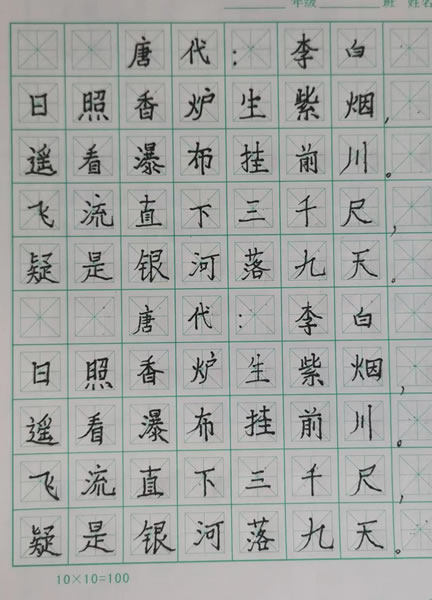 年级 班 姓名
唐代：李白
日照香炉生紫烟，
遥看瀑布挂前川。
飞流直下三千尺，
疑是银河落九天。
唐代：李白
日照香炉生紫烟，
遥看瀑布挂前川。
飞流直下三千尺，
疑是银河落九天。
10×10=100